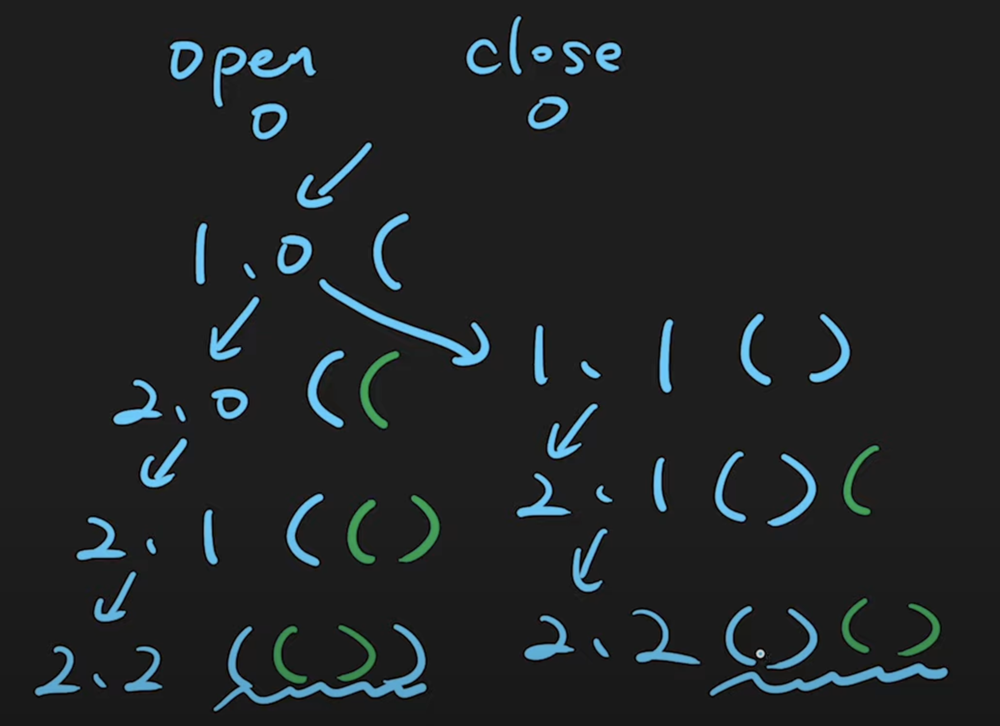 open close
0 0
1.0 (
1.1 ()
2.0 ((
2.1 ()(
2.1 (()
2.2 ()()
2.2 (())